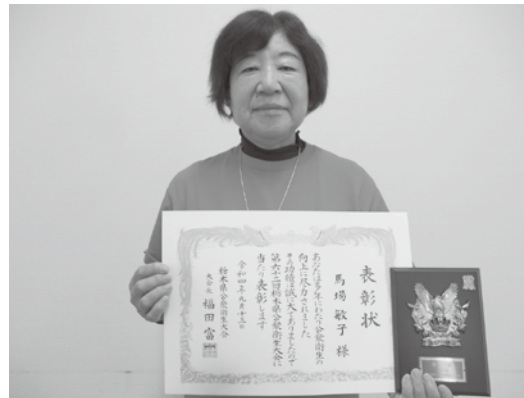 表彰状
馬場敏子様
あなたは多年にわたり公衆衛生の
向上に尽力されました
その功績は誠に大でありましたので
第六十二回栃木県公衆衛生大会に
当たり表彰します
令和四年九月十三日
栃木県公衆衛生大会
大会長 福田富